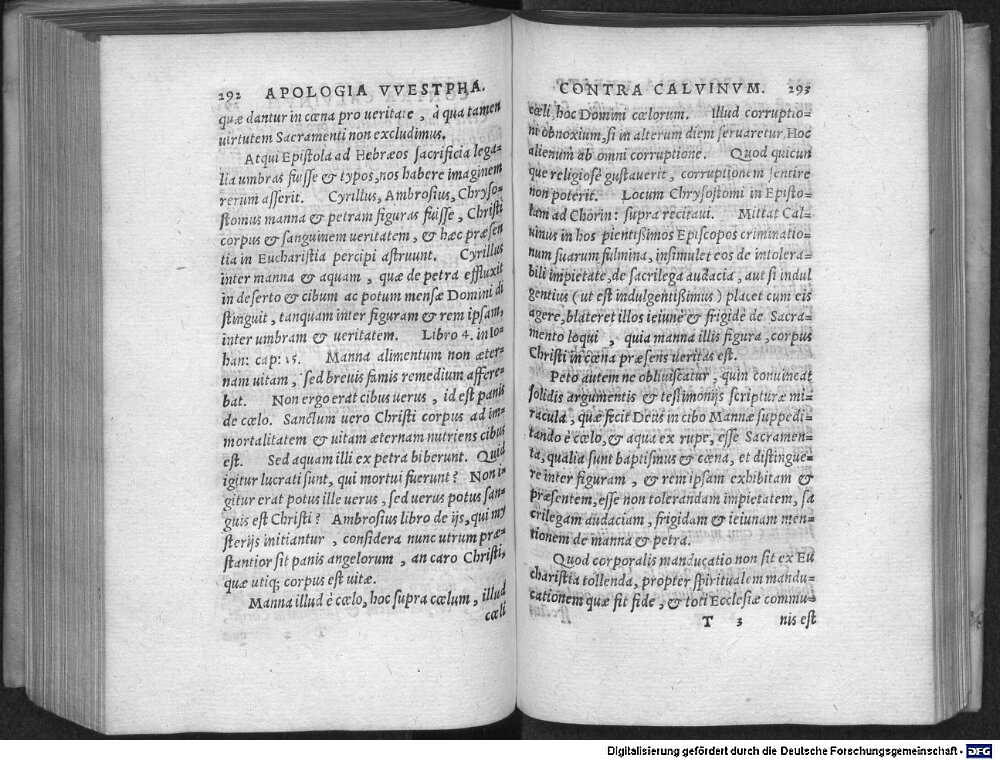 292 APOLOGIA VVESTPHA.
quæ dantur in cœna pro ueritate, à qua tamen
uirtutem Sacramenti non excludimus.
Atqui Epistola ad Hebræos sacrificia lega=
lia umbras fuisse & typos, nos habere imaginem
rerum asserit. Cyrillus, Ambrosius, Chryso=
stomus manna & petram figuras fuisse, Christi
corpus & sanguinem ueritatem, & hæc præsen
tia in Eucharistia percipi astruunt. Cyrillus
inter manna & aquam, quæ de petra effluxit
in deserto & cibum ac potum mensæ Domini di
stinguit, tanquam inter figuram & rem ipsam,
inter umbram & ueritatem. Libro 4. in Io=
han: cap: 15. Manna alimentum non æter=
nam uitam, sed breuis famis remedium affere=
bat. Non ergo erat cibus uerus, id est panis
de cœlo. Sanctum uero Christi corpus ad im=
mortalitatem & uitam æternam nutriens cibus
est. Sed aquam illi ex petra biberunt. Quid
igitur lucrati sunt, qui mortui fuerunt? Non i=
gitur erat potus ille uerus, sed uerus potus san=
guis est Christi? Ambrosius libro de ijs, qui my
sterijs initiantur, considera nunc utrum præ=
stantior sit panis angelorum, an caro Christi,
quæ utiq; corpus est uitæ.
Manna illud è cœlo, hoc supra cœlum, illud
cœli
CONTRA CALVINVM. 293
cœli, hoc Domini cœlorum. Illud corruptio=
ni obnoxium, si in alterum diem seruaretur. Hoc
alienum ab omni corruptione. Quod quicun
que religiosè gustauerit, corruptionem sentire
non poterit. Locum Chrysostomi in Episto=
lam ad Chorin: supra recitaui. Mittat Cal=
uinus in hos pientißimos Episcopos criminatio=
num suarum fulmina, insimulet eos de intolera=
bili impietate, de sacrilega audacia, aut si indul
gentius (ut est indulgentißimus) placet cum eis
agere, blateret illos ieiunè & frigidè de Sacra=
mento loqui, quia manna illis figura, corpus
Christi in cœna præsens ueritas est.
Peto autem ne obliuiscatur, quin conuincat
solidis argumentis & testimonijs scripturæ mi=
racula, quæ fecit Deus in cibo Mannæ suppedi=
tando è cœlo, & aqua ex rupe, esse Sacramen=
ta, qualia sunt baptismus & cœna, et distingue=
re inter figuram, & rem ipsam exhibitam &
præsentem, esse non tolerandam impietatem, sa
crilegam audaciam, frigidam & ieiunam men=
tionem de manna & petra.
Quod corporalis manducatio non sit ex Eu
charistia tollenda, propter spiritualem mandu=
cationem quæ fit fide, & toti Ecclesiæ commu=
T 3 nis est
Digitalisierung gefördert durch die Deutsche Forschungsgemeinschaft - DFG